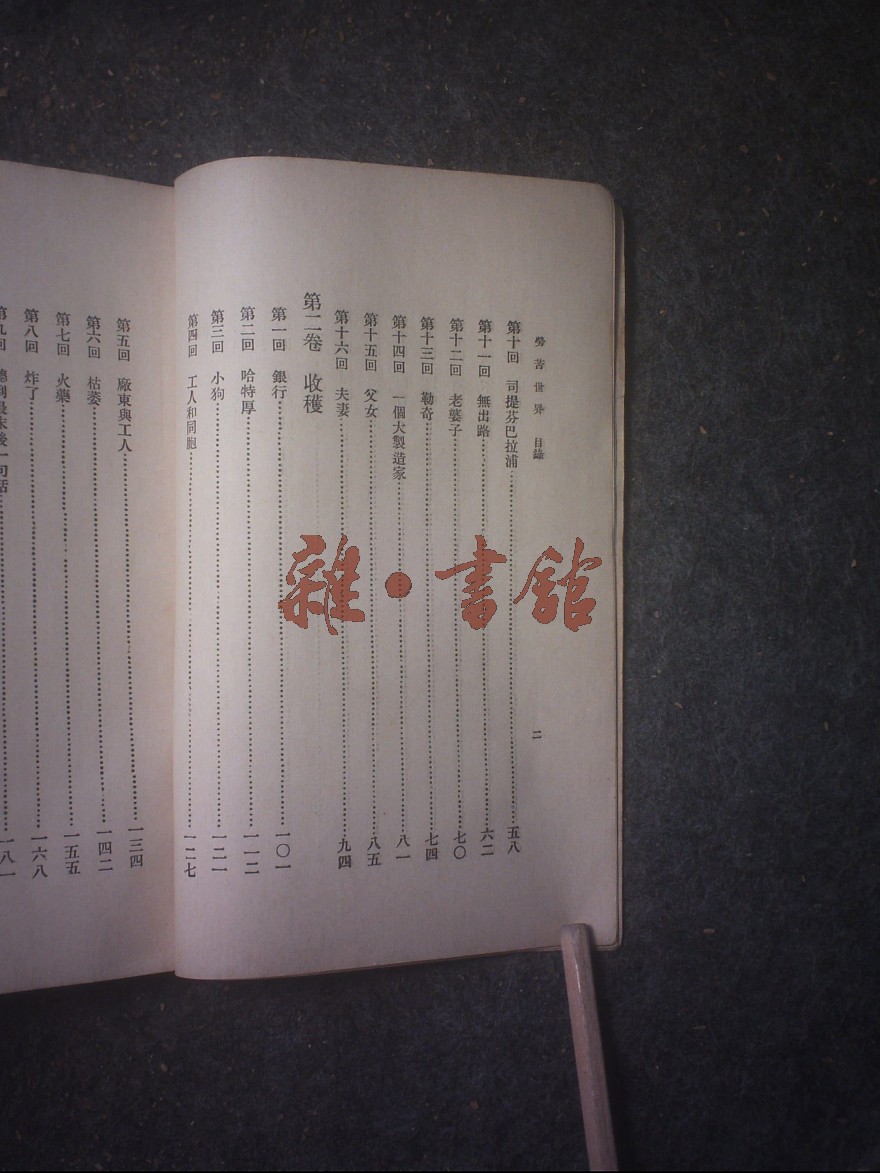 勞苦世界 目錄
二
第十回 司提芬巴拉浦 五八
第十一回 無出路 六二
第十二回 老婆子 七〇
第十三回 勒奇 七四
第十四回 一個大製造家 八一
第十五回 父女 八五
第十六回 夫妻 九四
第二卷 收穫
第一回 銀行 一〇一
第二回 哈特厚 一一二
第三回 小狗 一二一
第四回 工人和同胞 一二七
第五回 廠東與工人 一三四
第六回 枯萎 一四二
第七回 火藥 一五五
第八回 炸了 一六八
第九回 到最末後一句話 一八一
雜·書館